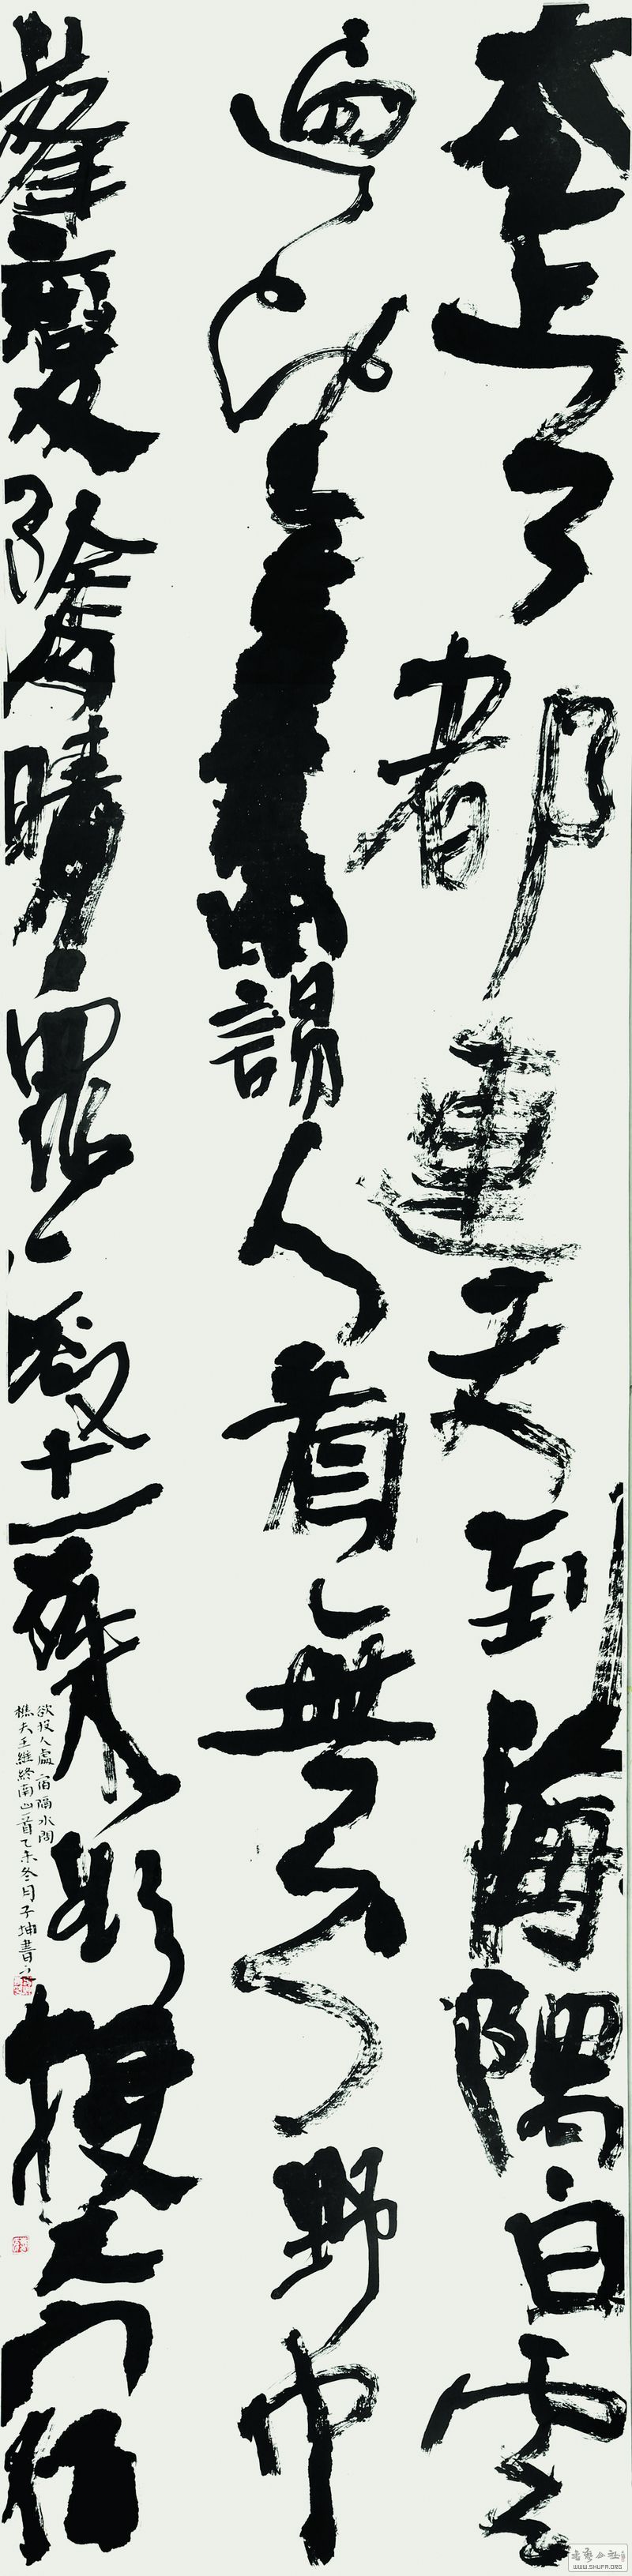 太乙都連天到海隅白雲
迴青靄人看無分野中
峯變陰晴眾壑殊投宿
欲投人處宿隔水問
樵夫王維終南山首乙未冬月子坤書之
WWW.SHUFA.ORG